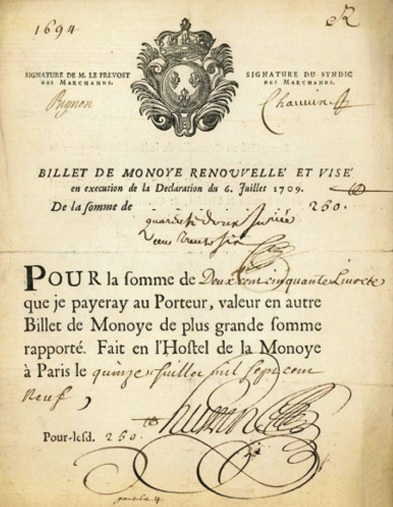 1694
R
SIGNATURE DE M. LE PREVOST
DES MARCHANDS.
SIGNATURE DU SYNDIC
DES MARCHANDS.
Bignon
BILLET DE MONOYE RENOUVELLÉ ET VISÉ
en execution de la Declaration du 6. Juillet 1709.
De la somme de 250.
POUR la somme de Deux cent cinquante Livres
que je payeray au Porteur, valeur en autre
Billet de Monoye de plus grande somme
rapporté. Fait en l'Hostel de la Monoye
à Paris le quinze Juillet mil sept cent
Neuf,
Pour-lesd. 250.